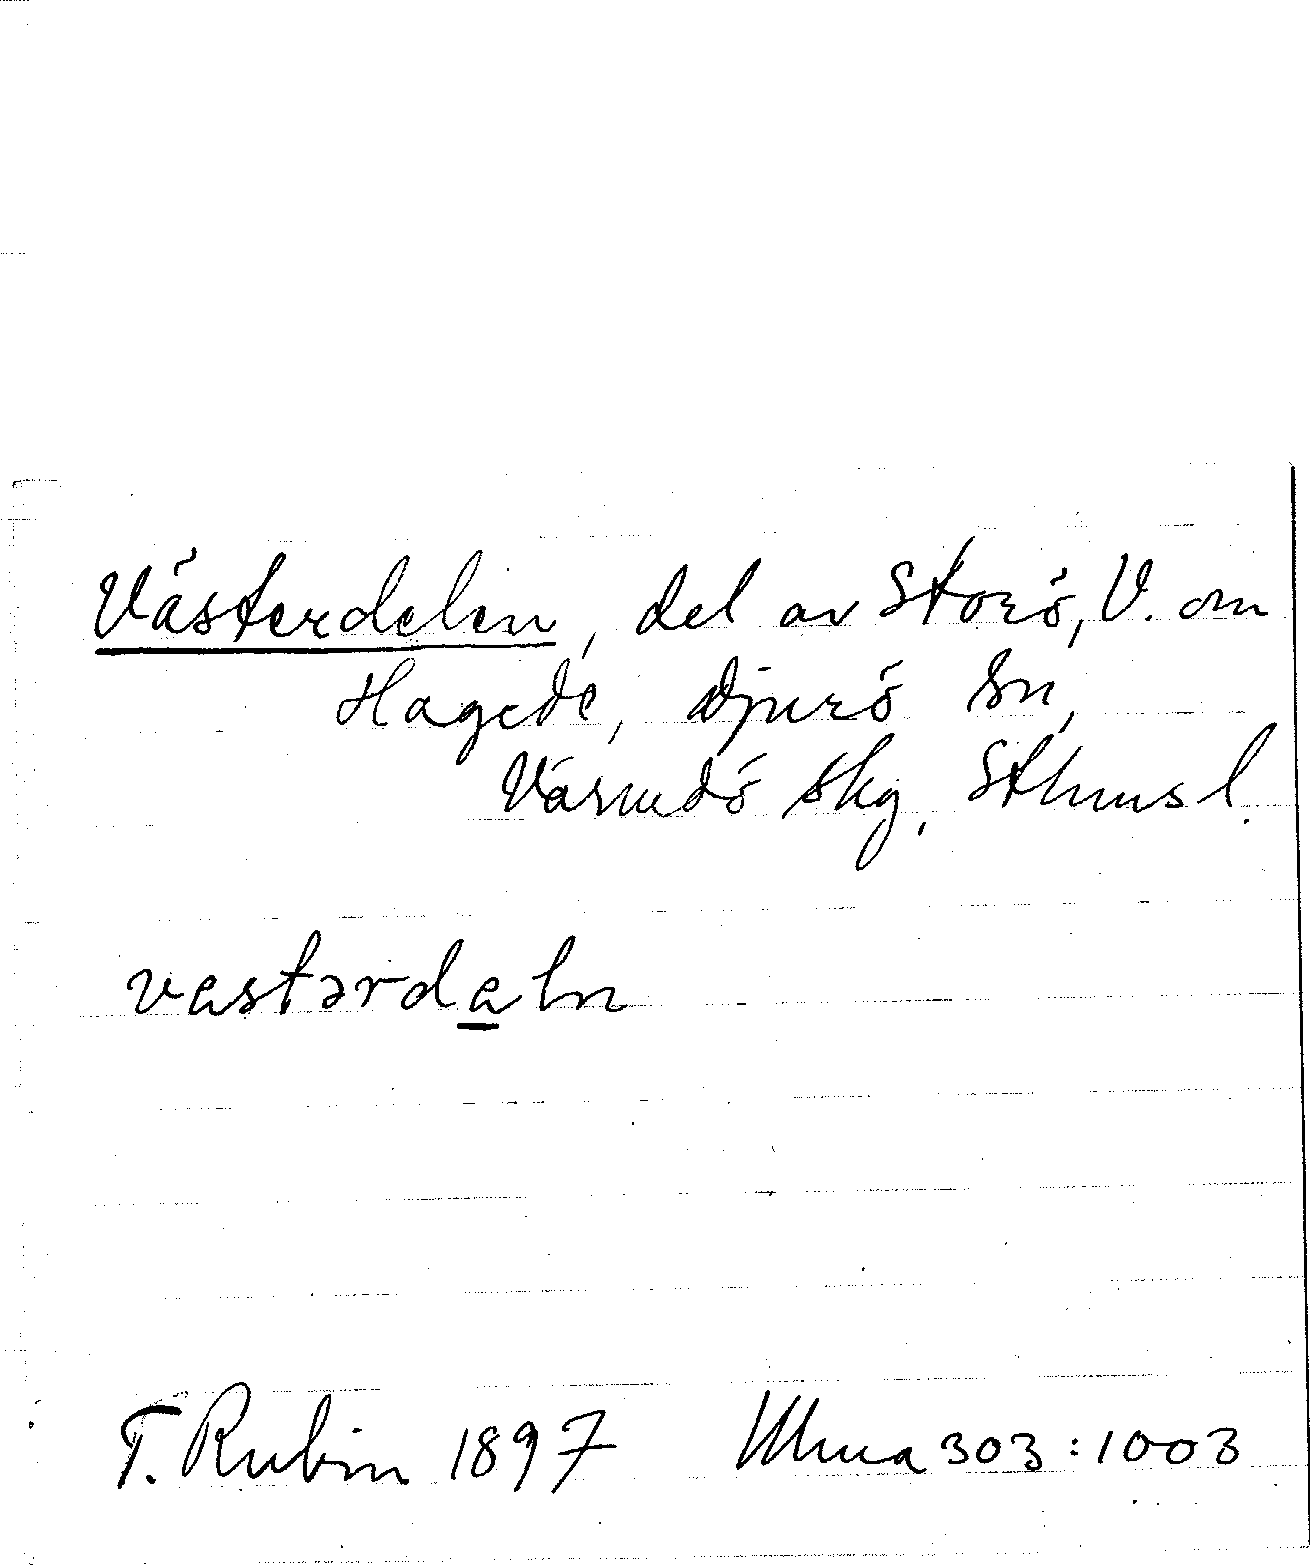 Västerdelen, del av Storö, V. om
Hagede, Djurö sn,
Värmdö skg, Sthms l.
vastərdeln
T. Rubin 1897 Ulma 303:1003